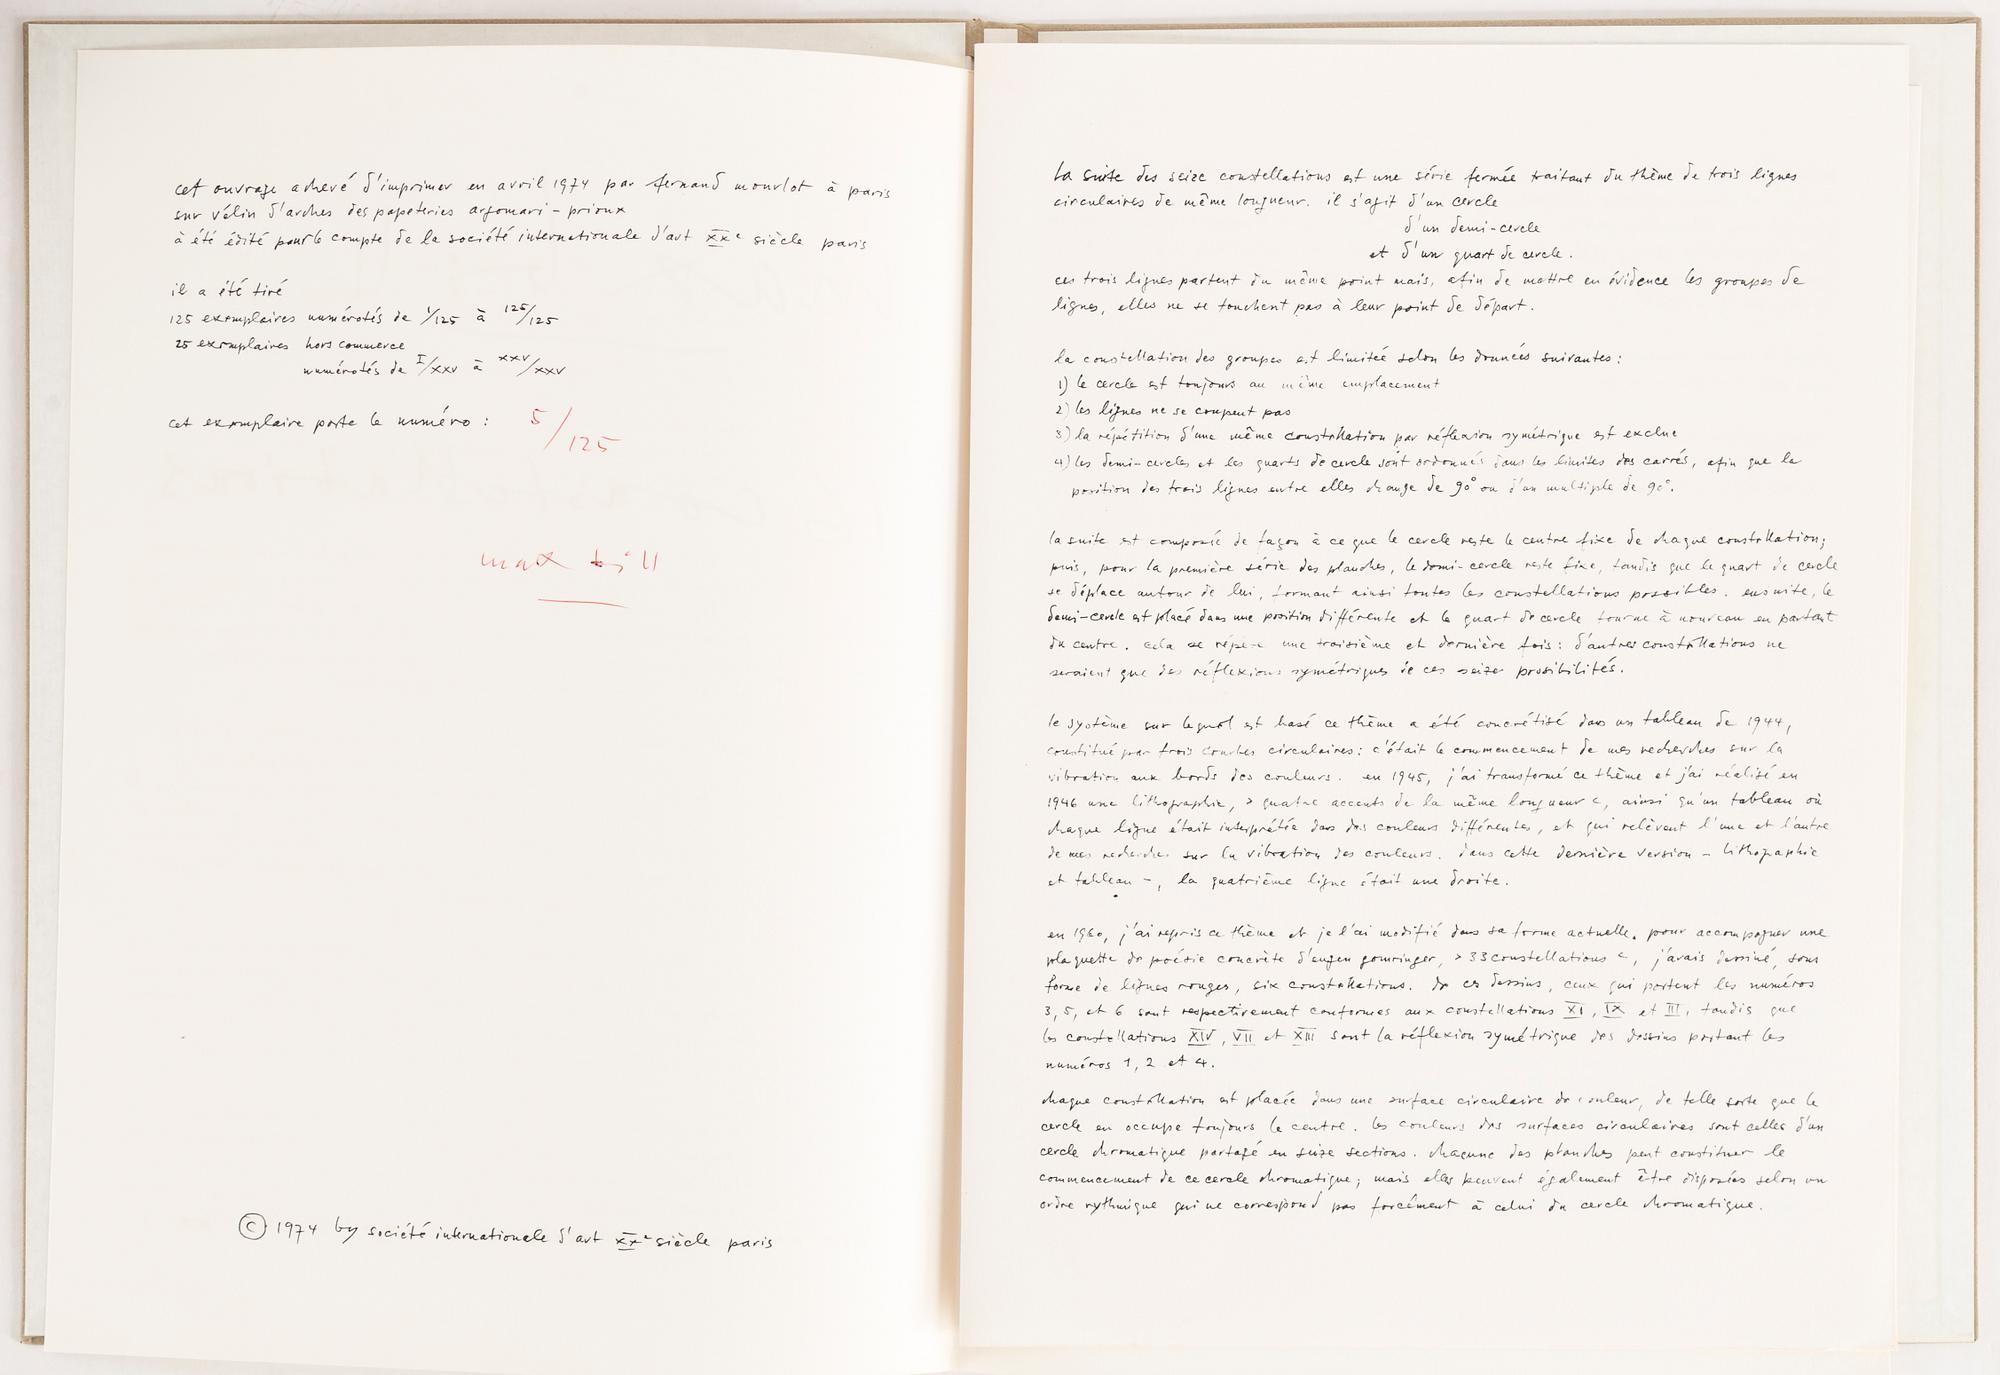 cet ouvrage achevé d'imprimer en avril 1974 par fernand mourlot à paris
sur vélin d'arches des papeteries arjomari - prioux
à été édité pour le compte de la société internationale d'art XXe siècle paris
il a été tiré
125 exemplaires numérotés de 1/125 à 125/125
25 exemplaires hors commerce
numérotés de I/XXV à XXV/XXV
cet exemplaire porte le numéro : 5/125
max bill
© 1974 by société internationale d'art XXe siècle paris
la suite des seize constellations est une série fermée traitant du thème de trois lignes
circulaires de même longueur. il s'agit d'un cercle
d'un demi-cercle
et d'un quart de cercle.
ces trois lignes partent du même point mais, afin de mettre en évidence les groupes de
lignes, elles ne se touchent pas à leur point de départ.
la constellation des groupes est limitée selon les données suivantes :
1) le cercle est toujours au même emplacement
2) les lignes ne se coupent pas
3) la répétition d'une même constellation par réflexion symétrique est exclue
4) les demi-cercles et les quarts de cercle sont ordonnés dans les limites des carrés, afin que la
position des trois lignes entre elles change de 90° ou d'un multiple de 90°.
la suite est composée de façon à ce que le cercle reste le centre fixe de chaque constellation;
puis, pour la première série des planches, le demi-cercle reste fixe, tandis que le quart de cercle
se déplace autour de lui, formant ainsi toutes les constellations possibles. ensuite, le
demi-cercle est placé dans une position différente et le quart de cercle tourne à nouveau en partant
du centre. cela se répète une troisième et dernière fois : d'autres constellations ne
seraient que des réflexions symétriques de ces seize possibilités.
le système sur lequel est basé ce thème a été concrétisé dans un tableau de 1944,
constitué par trois courbes circulaires : c'était le commencement de mes recherches sur la
vibration aux bords des couleurs. en 1945, j'ai transformé ce thème et j'ai réalisé en
1946 une lithographie, >quatre accents de la même longueur<, ainsi qu'un tableau où
chaque ligne était interprétée dans des couleurs différentes, et qui relèvent l'une et l'autre
de mes recherches sur la vibration des couleurs. dans cette dernière version - lithographie
et tableau -, la quatrième ligne était une droite.
en 1960, j'ai repris ce thème et je l'ai modifié dans sa forme actuelle. pour accompagner une
plaquette de poésie concrète d'eugen gomringer, >33 constellations<, j'avais dessiné, sous
forme de lignes rouges, six constellations. de ces dessins, ceux qui portent les numéros
3, 5, et 6 sont respectivement conformes aux constellations XI, IX et III, tandis que
les constellations XIV, VII et XIII sont la réflexion symétrique des dessins portant les
numéros 1, 2 et 4.
chaque constellation est placée dans une surface circulaire de couleur, de telle sorte que le
cercle en occupe toujours le centre. les couleurs des surfaces circulaires sont celles d'un
cercle chromatique partagé en seize sections. chacune des planches peut constituer le
commencement de ce cercle chromatique; mais elles peuvent également être disposées selon un
ordre rythmique qui ne correspond pas forcément à celui du cercle chromatique.